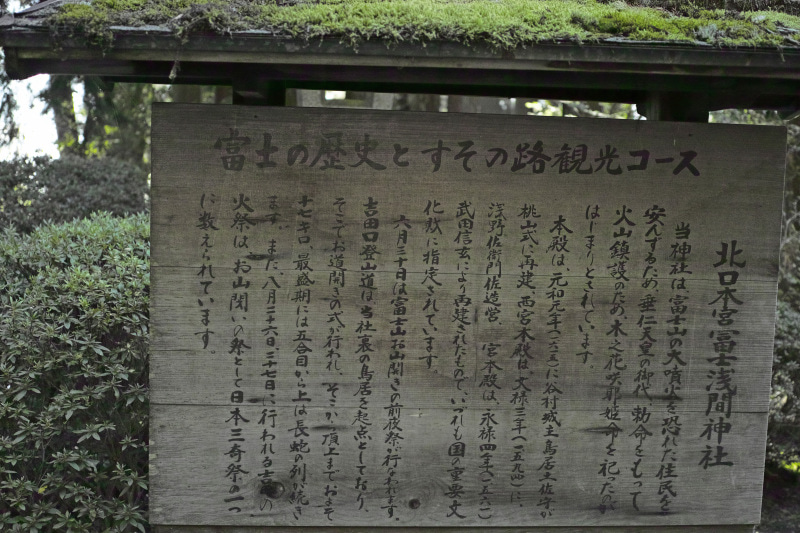 富士の歴史とすその路観光コース
北口本宮冨士浅間神社
当神社は富士山の大噴火を恐れた住民を
安んずるため、垂仁天皇の御代、勅命をもって
火山鎮護のため、木之花咲耶姫命を祀ったが
はじまりとされています。
本殿は、元和元年(一六一五)に谷村城主鳥居土佐守が
桃山式に再建、西宮本殿は、文禄三年(一五九四)に、
浅野佐衛門佐造営 宮本殿は、永禄四年(一五六一)
武田信玄により再建されたもので、いづれも国の重要文
化財に指定されています。
六月三十日は富士山お山開きの前夜祭が行われます。
吉田口登山道は当社裏の鳥居を起点としており、
そこでお道開きの式が行われ、そこから頂上までおよそ
十七キロ、最盛期には五合目から上は長蛇の列が続き
ます。また、八月二十六日、二十七日に行われる吉田の
火祭は、お山閉いの祭として日本三奇祭の一つ
に数えられています。